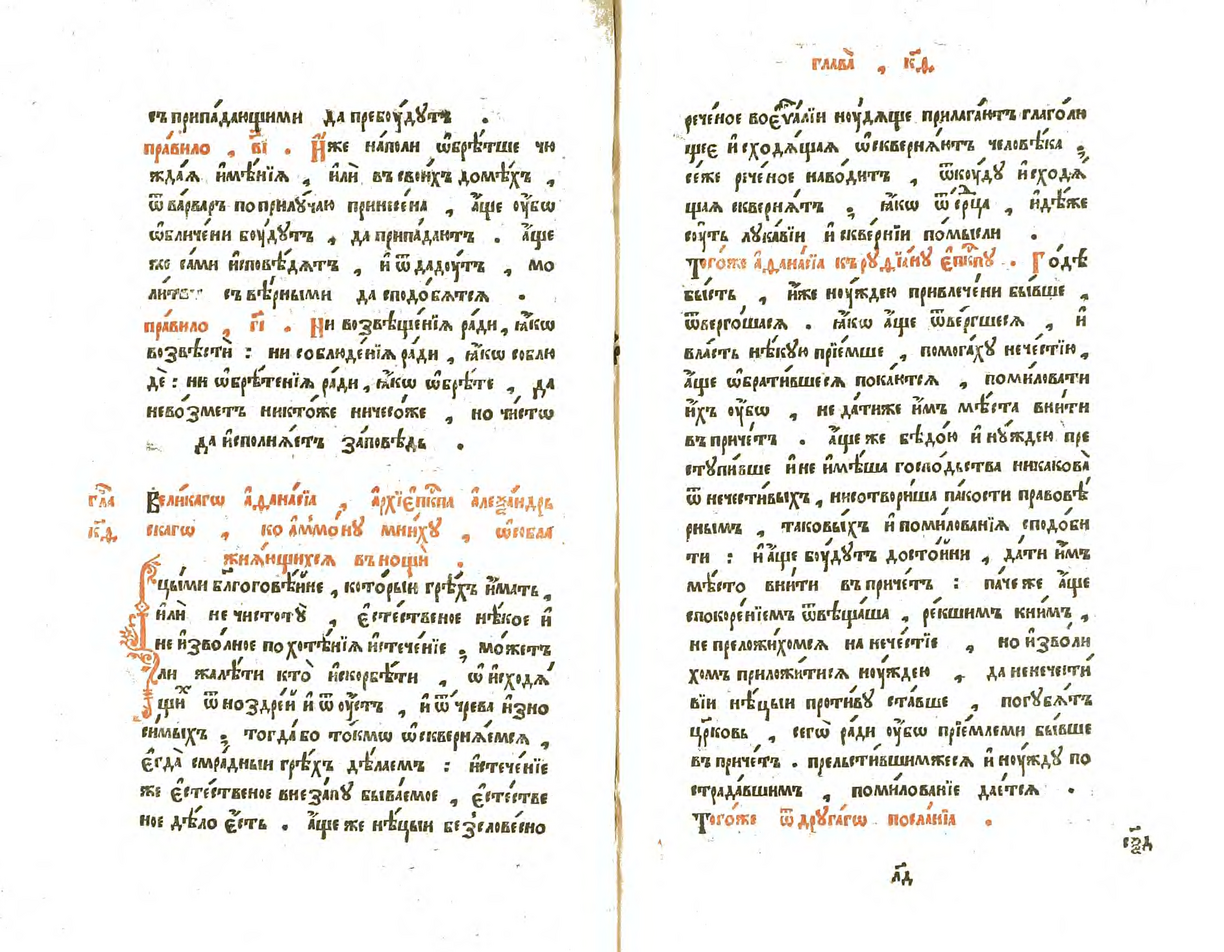 съприпа́дающими да пребоу́дутъ .
пра́вило , в҃і . И҆́же на́поли ѡ҆брѣ́тше чю
жда́ѧ и҆мѣ́нїѧ , и҆лѝ въ свои́хъ домѣ́хъ ,
ѿ ва́рваръ по прилу́чаю принесе́на , а҆́ще оу҆́бѡ
ѡ҆бличе́ни боу́дутъ , да припа́даютъ . а҆́ще
же са́ми и҆сповѣ́дѧтъ , и҆ ѿдадоу́тъ , мо
ли́твъ съ вѣ́рными да сподо́бѧтсѧ .
пра́вило , г҃і . Ни возвѣще́нїѧ ра́ди , ꙗ҆́кѡ
возвѣстѝ : ни соблюде́нїѧ ра́ди , ꙗ҆́кѡ соблю
дѐ : ни ѡ҆брѣ́тенїѧ ра́ди , ꙗ҆́кѡ ѡ҆брѣ́те , да
нево́зметъ никто́же ничесо́же , но чи́стѡ
да и҆сполнѧ́етъ за́повѣдь .
гл҃а к҃д
Вели́кагѡ а҆ѳана́сїа , а҆рхїе҆пⷭ҇кпа а҆леѯа́ндрь
скагѡ , ко а҆ммо́ну мни́ху , ѡ҆собла
жнѧ́ющихсѧ въ нощѝ .
Іцыми бл҃гоговѣ́йне , кото́рыи грѣ́хъ и҆́мать ,
и҆лѝ не чистотꙋ̀ , є҆сте́ственое нѣ́кое и҆
не и҆зво́лное по хотѣ́нїѧ и҆стече́нїе ; мо́жетъ
ли жалѣ́ти кто̀ и҆скорбѣ́ти , ѡ҆ и҆сходѧ́
щиⷯ ѿ ноздре́й и҆ ѿ оу҆́стъ , и҆ ѿ чре́ва и҆зно
си́мыхъ ; тогда́ бо то́кмѡ ѡ҆сквернѧ́емсѧ ,
є҆гда̀ смра́дныи грѣ́хъ дѣ́лаемъ : и҆стече́нїе
же є҆сте́ственое внеза́пꙋ быва́емое , є҆сте́стве
ное дѣ́ло є҆́сть . а҆́ще же нѣ́цыи безслове́сно
глава̀ , к҃д .
рече́ное во є҆ѵⷢ҇а́лїи ноу́дѧще прилага́ютъ глаго́лю
щее и҆сходѧ́щаѧ ѡ҆сквернѧ́ютъ человѣ́ка ;
се́же рече́ное наво́дитъ , ѿкоу́дꙋ и҆сходѧ́
щаѧ сквернѧ́тъ ; ꙗ҆́кѡ ѿ се́рⷣца , и҆дѣ́же
соу́ть лука́вїи и҆ скве́рнїи по́мысли .
Тогѡ́же а҆ѳана́сїа къ рꙋдїа́нꙋ є҆пⷭ҇кпꙋ . Го́дѣ
бы́сть , и҆́же ноу́ждею привлече́ни бы́вше ,
ѿверго́шасѧ . ꙗ҆́кѡ а҆́ще ѿве́ргшесѧ , и҆
вла́сть нѣ́кую прїе́мше , помога́хꙋ нече́стїю ,
а҆́ще ѡ҆брати́вшесѧ пока́ютсѧ , поми́ловати
и҆́хъ оу҆́бѡ , не да́тиже и҆̀мъ мѣ́ста вни́ти
въ при́четъ . а҆́ще же бѣдо́ю и҆ нꙋ́ждею пре
ступи́вше и҆ не и҆мѣ́ша госпо́дьства никакова̀
ѿ нечести́выхъ , ни сотвори́ша па́кости правовѣ́
рнымъ , таковы́хъ и҆ поми́лованїѧ сподо́би
ти : и҆ а҆́ще боу́дутъ досто́йни , да́ти и҆̀мъ
мѣ́сто вни́ти въ при́четъ : па́че же а҆́ще
с покоре́нїемъ ѿвѣща́ша , ре́кшимъ кни́мъ ,
не преложи́хомсѧ на нече́стїе , но и҆зво́ли
хомъ приложи́тисѧ ноу́ждею , да не нечести́
вїи нѣ́цыи проти́вꙋ ста́вше , погу́бѧтъ
цр҃ковь , сегѡ̀ ра́ди оу҆́бѡ прїе́млеми бы́вше
въ при́четъ . прельсти́вшимжесѧ и҆ ноу́ждꙋ по
страда́вшимъ , поми́лованїе дае́тсѧ .
Того́же ѿ дрꙋга́гѡ посла́нїа .
л҃д